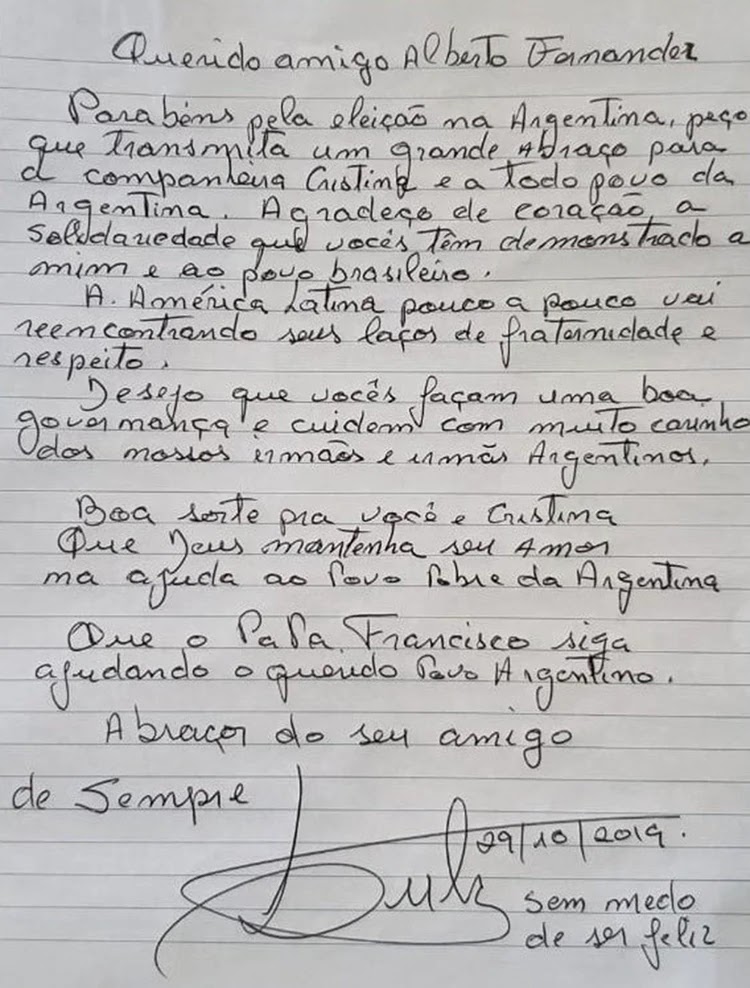 Querido amigo Alberto Fernandez
Parabéns pela eleição na Argentina, peço
que transmita um grande Abraço para
a companheira Cristina e a todo povo da
Argentina. Agradeço de coração, a
solidariedade que vocês têm demonstrado a
mim e ao povo brasileiro.
A. América Latina pouco a pouco vai
reencontrando seus laços de fraternidade e
respeito.
Desejo que vocês façam uma boa
governança e cuidem com muito carinho
dos nossos irmãos e irmãs Argentinos.
Boa sorte pra você e Cristina
Que Deus mantenha seu Amor
na ajuda ao Povo Pobre da Argentina
Que o Papa Francisco siga
ajudando o querido Povo Argentino.
Abraços do seu amigo
de Sempre
29/10/2019.
Lula
sem medo
de ser feliz